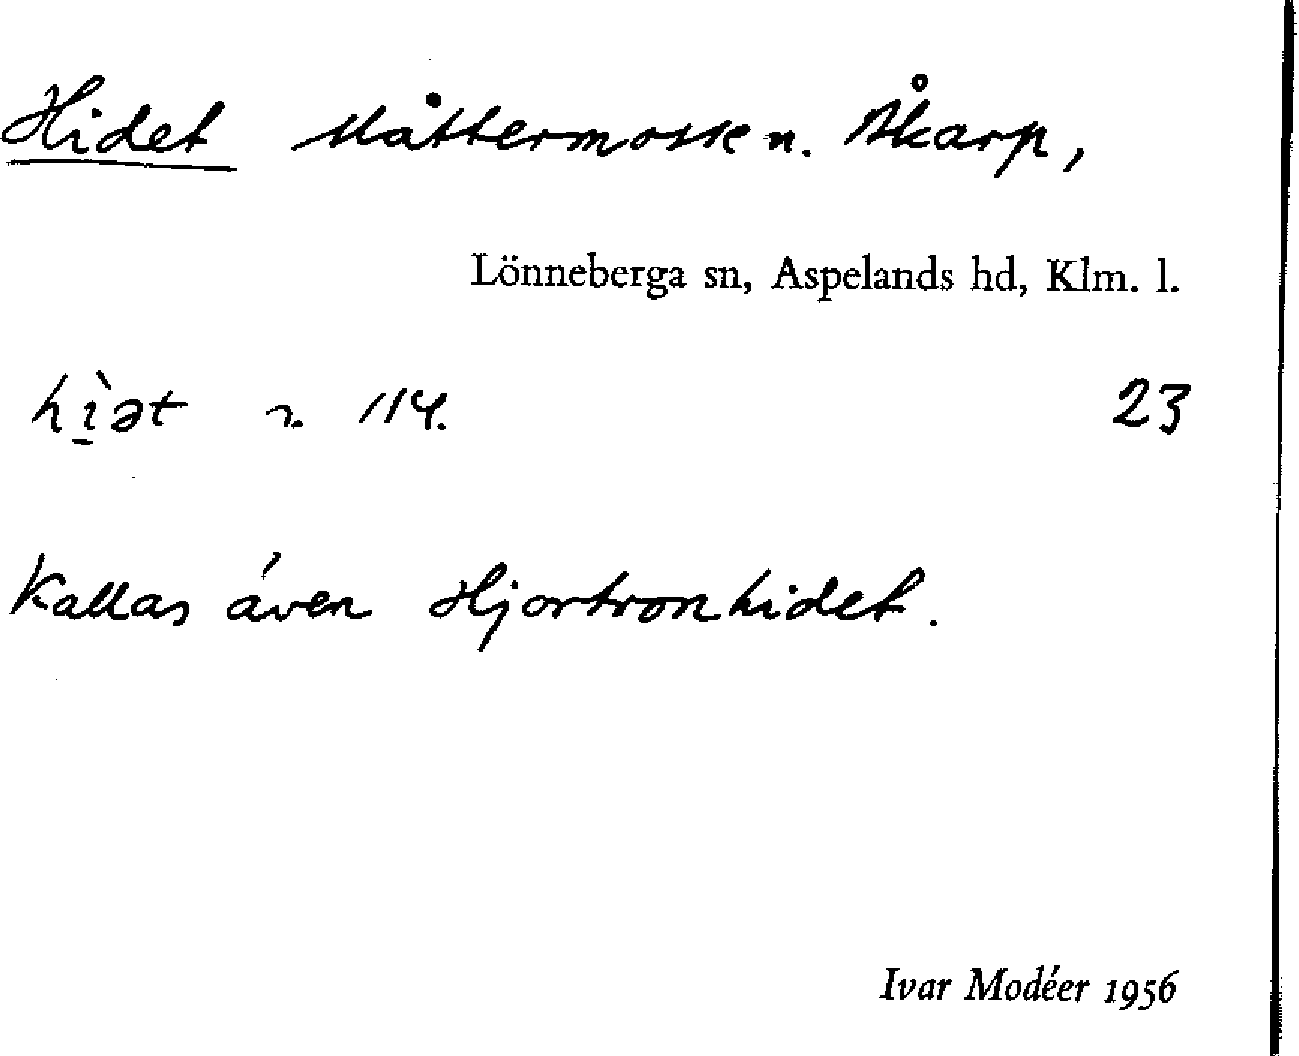 Hidet Måttermossen. Åkarp,
Lönneberga sn, Aspelands hd, Klm. l.
hì̱ət n. 114. 23
Kallas även Hjortronhidet.
Ivar Modéer 1956